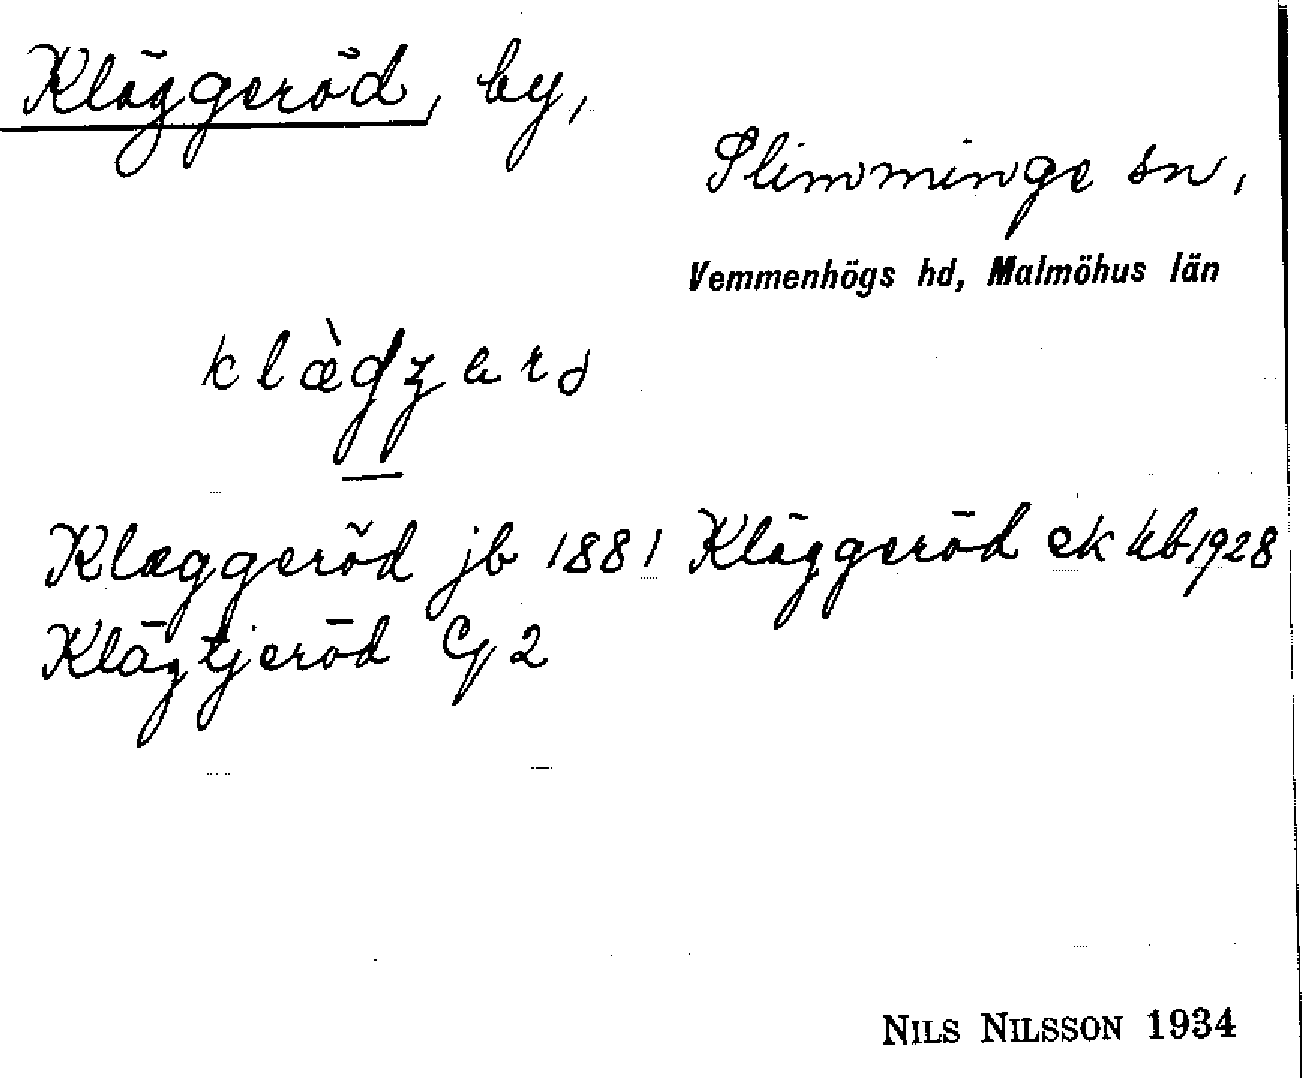 Kläggeröd, by,
Slimminge sn,
Vemmenhögs hd, Malmöhus län
Klæggeröd jb 1881 Kläggeröd ek kb 1928
Klägtjeröd G 2
NILS NILSSON 1934